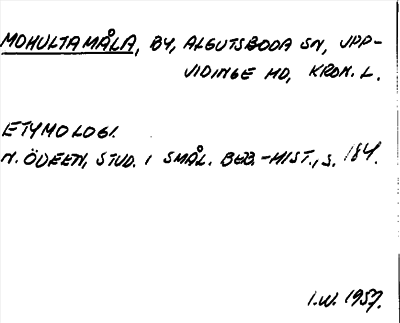 MOHULTAMÅLA, BY, ALGUTSBODA SN, UPP-
VIDINGE HD, KRON. L.
ETYMOLOGI.
N. ÖDEEN, STUD. I SMÅL. BEB.-HIST., S. 184.
I.W. 1957.